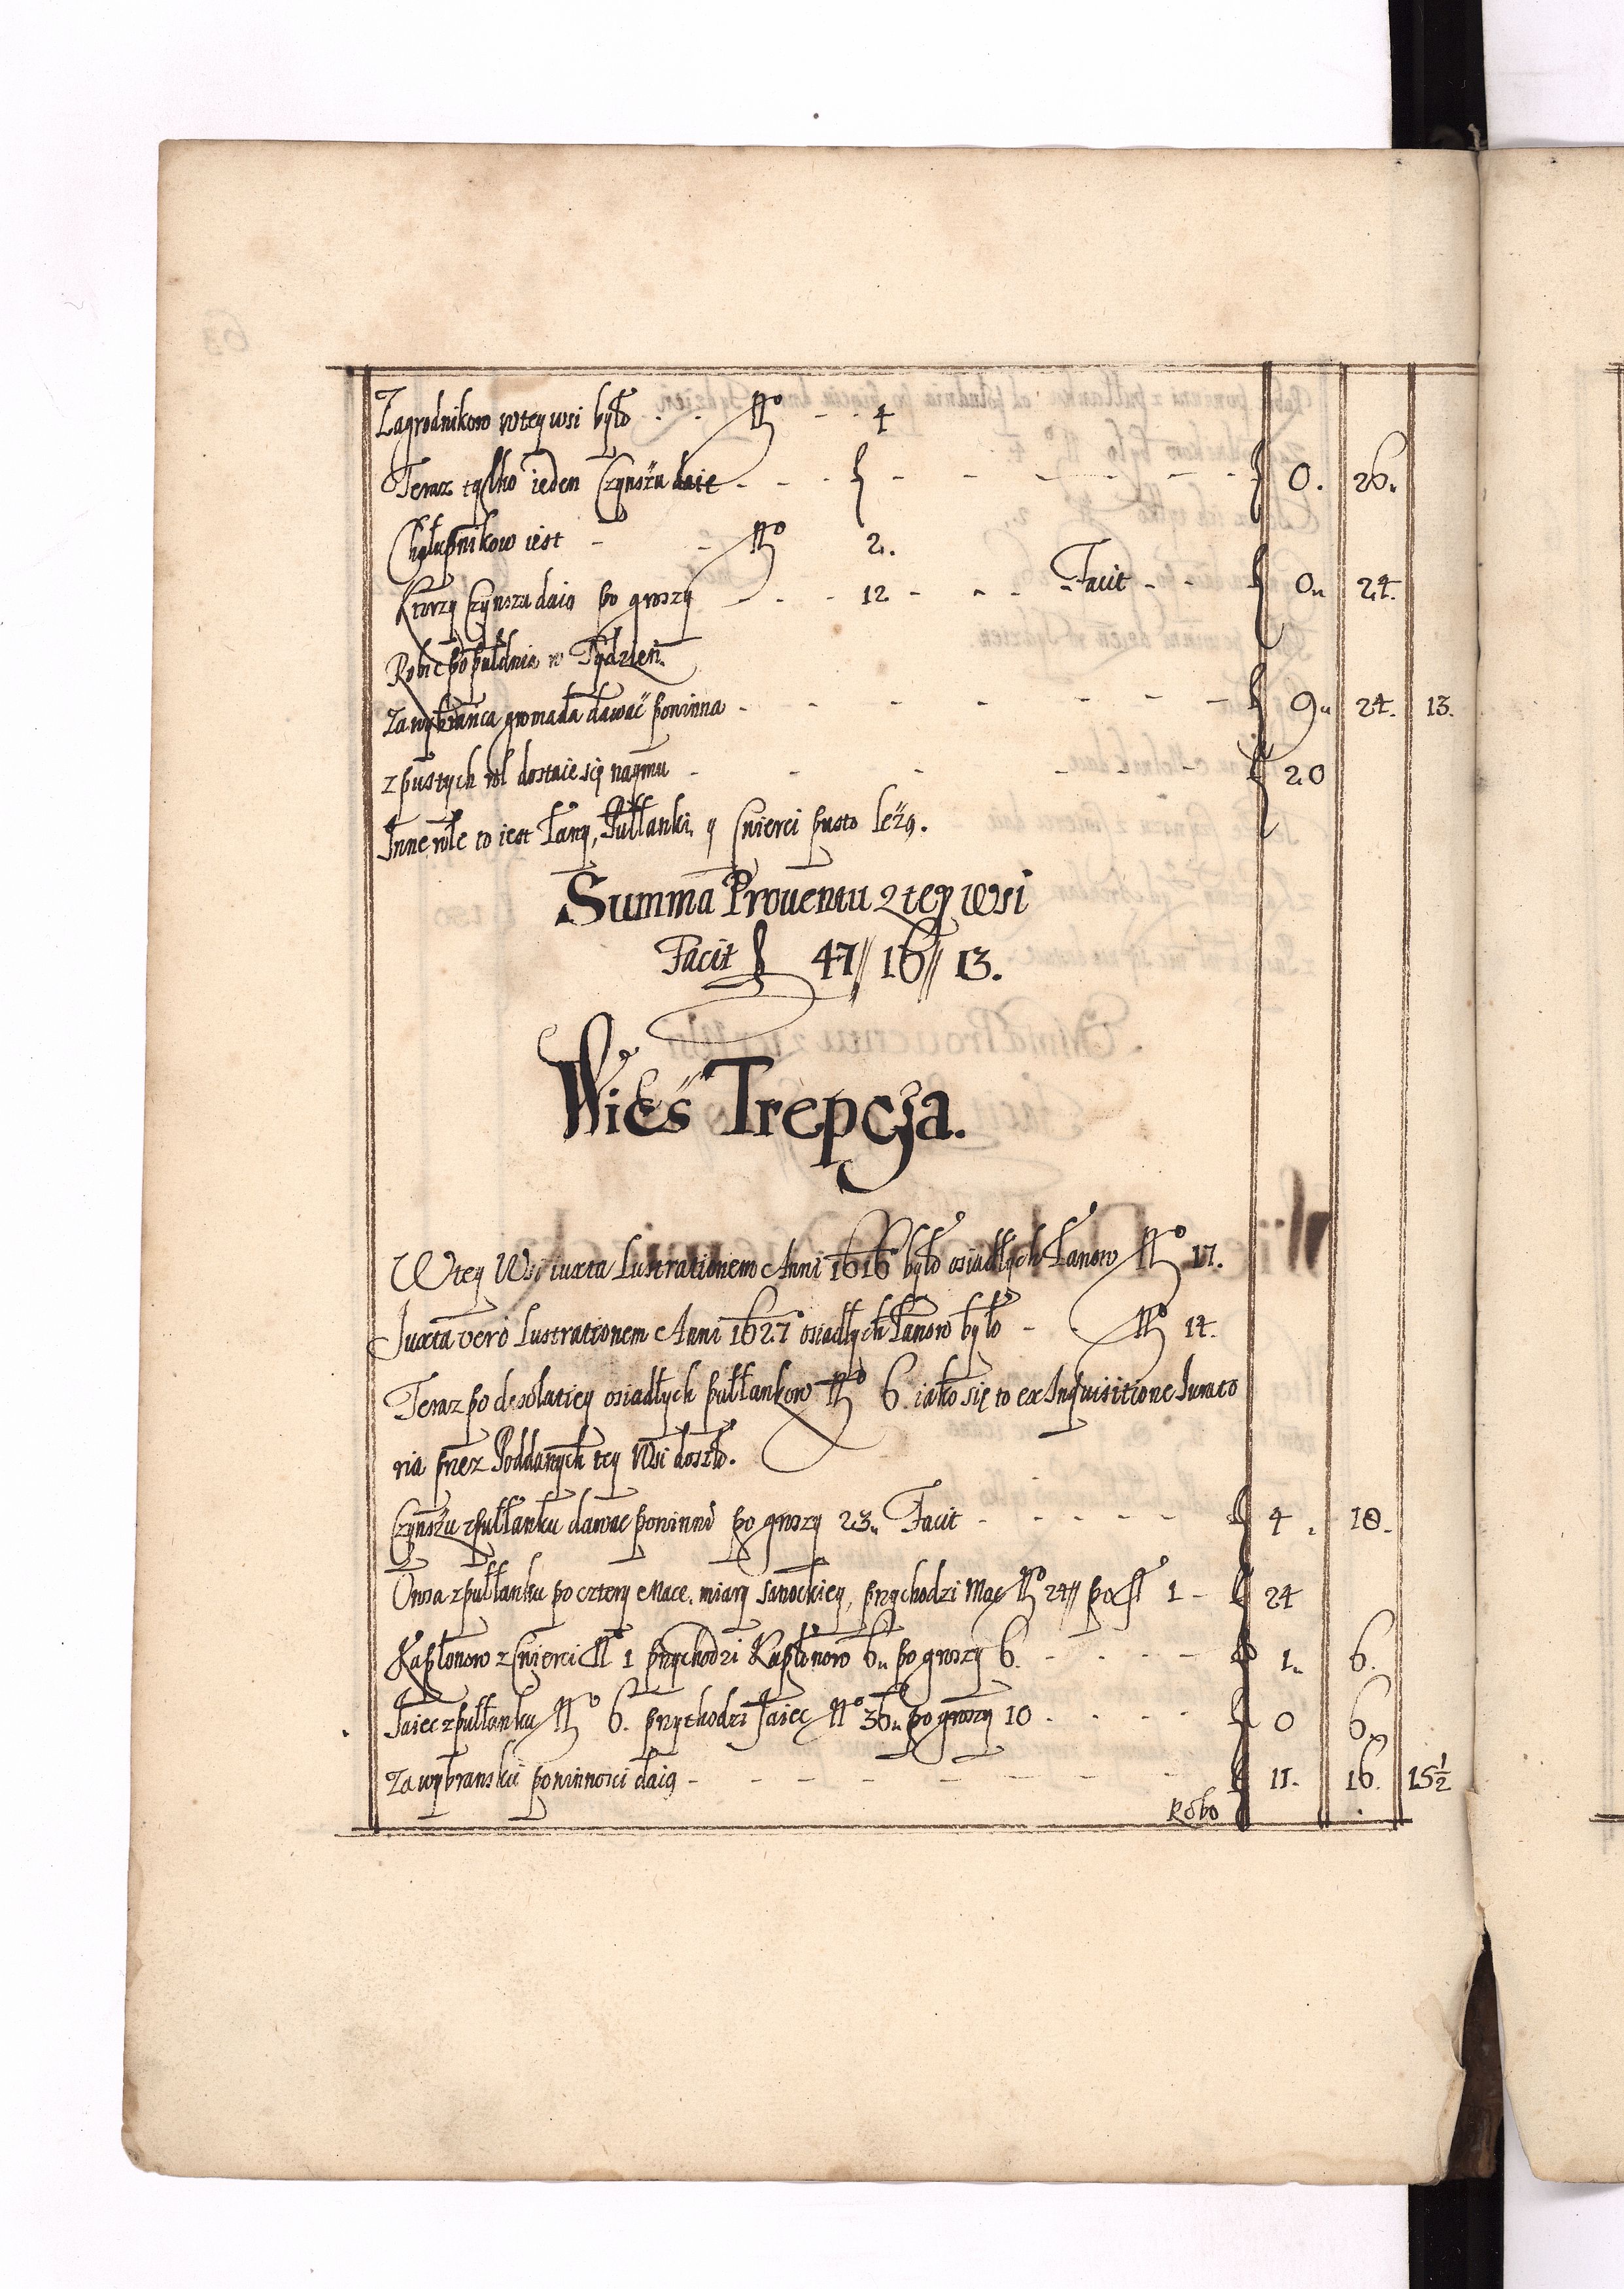 Zagrodnikow w tey wsi było - - Nro - - 4
Teraz tylko ieden Czynszu daie - - - 0. 26.
Chałupnikow iest - - Nro 2.
Ktorzy Czynszu daią po groszy - - - 12 - - - Facit - - 0. 24.
Robić po puł dnia w Tydzień.
Za wybrańca gromada dawać powinna - - - - - - 9. 24. 13.
z pustych ról dostaie się naymu - - - - - 20
Inne role to iest Łany, Pułłanki, y Cwierci pusto leżą.
Summa Prouentu z tey Wsi
Facit 47// 16// 13.
Wieś Trepcza.
W tey Wsi iuxta Lustrationem Anni 1616 było osiadłych Łanow Nro 17.
Juxta vero Lustrationem Anni 1627 osiadłych Łanow było - - Nro 14.
Teraz po desolatiey osiadłych pułłankow Nro 6. iako się to ex Inquisitione Iurato
ria przez Poddanych tey Wsi doszło.
Czynszu z pułłanku dawać powinni po groszy 23. Facit - - - - - 4. 18.
Owsa z pułłanku po cztery Mace, miary Sanockiey, przychodzi Mac Nro 24// po fl 1 - 24
Kapłonow z Cwierci Nro 1 przychodzi Kapłonow 6. po groszy 6. - - - - 1. 6.
Jaiec z pułłanku Nro 6. przychodzi Jaiec Nro 36. po groszy 10. - - - - 0 6.
Za wybranskie powinności daią - - - - - - - - 11. 16. 15½
Robo